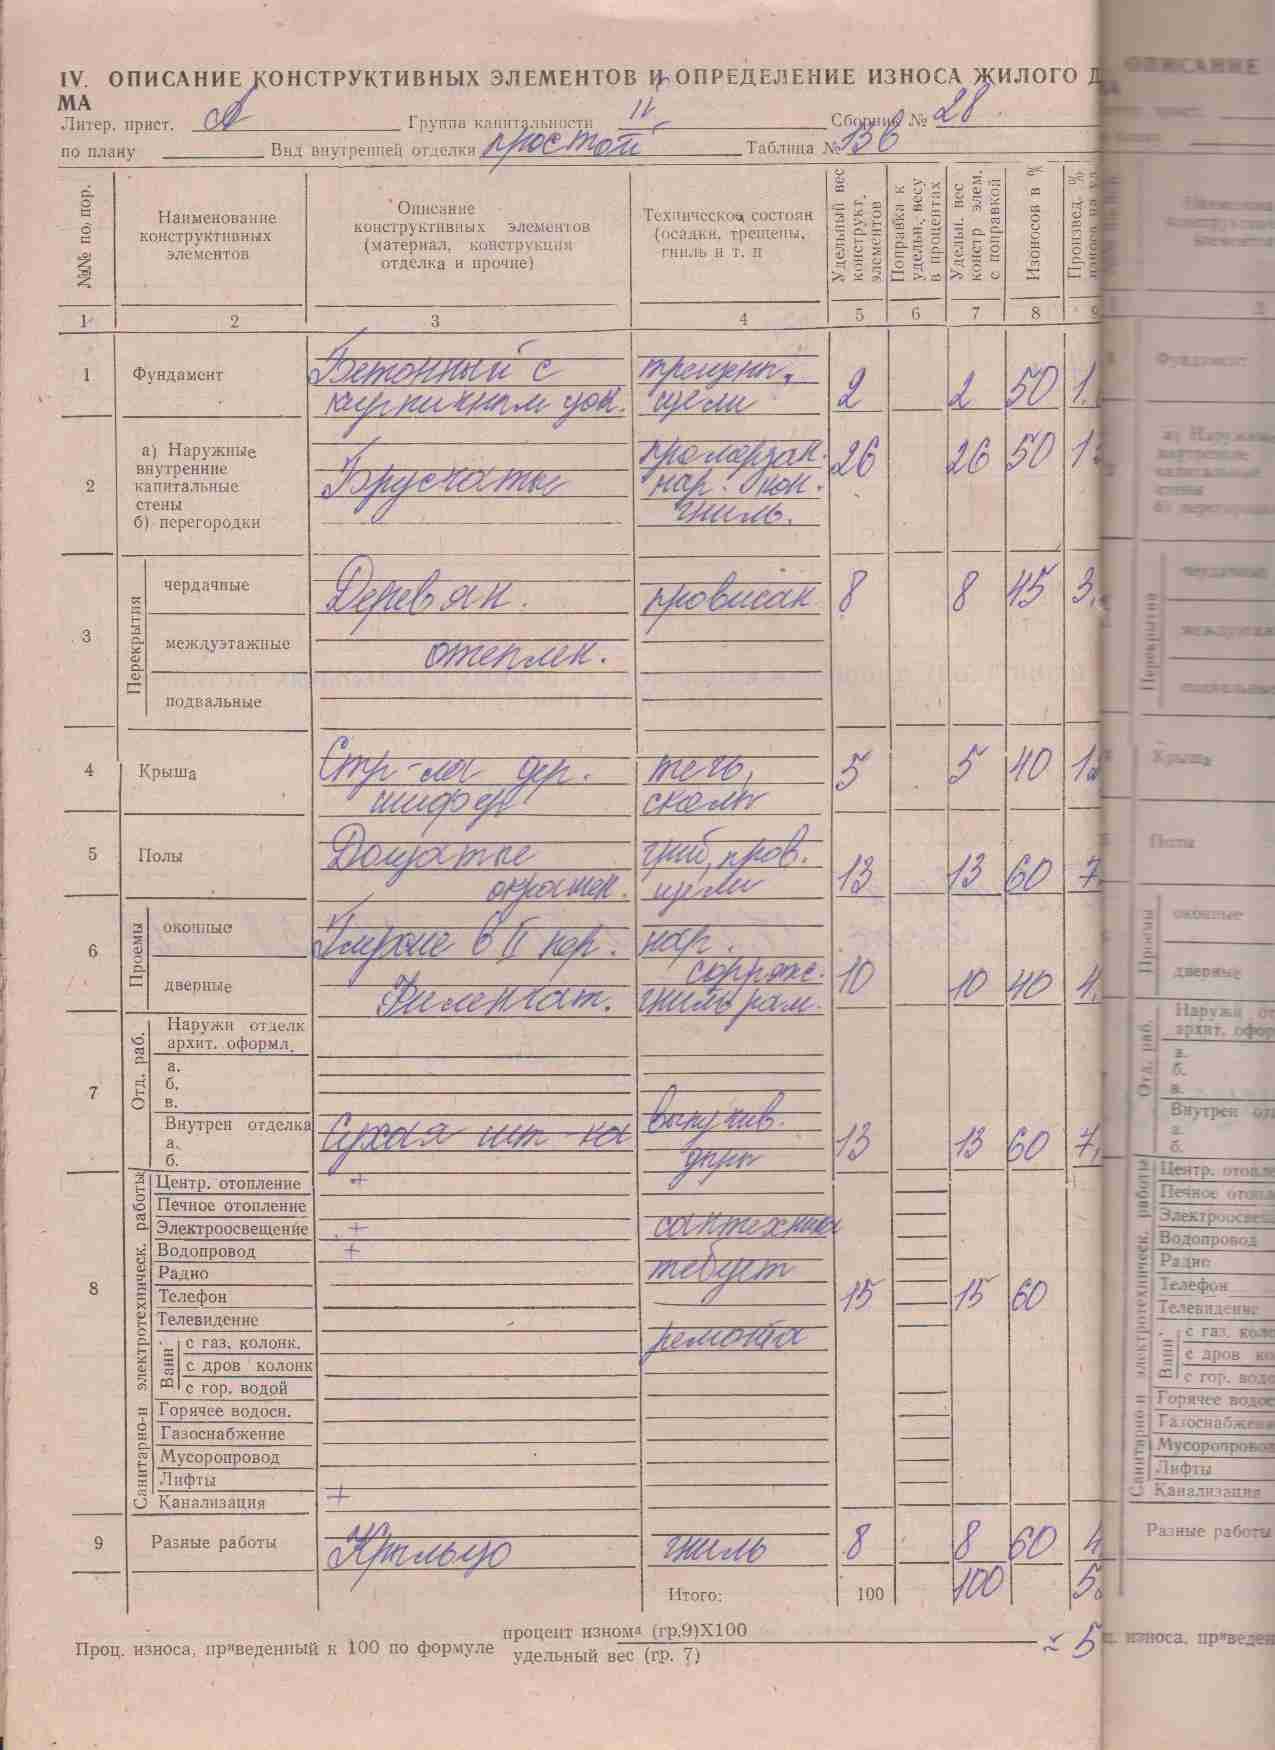 IV. ОПИСАНИЕ КОНСТРУКТИВНЫХ ЭЛЕМЕНТОВ И ОПРЕДЕЛЕНИЕ ИЗНОСА ЖИЛОГО Д
МА
Литер. прист. А Группа капитальности IV Сборник № 28
по плану Вид внутренней отделки простой Таблица № 13в
№№ по пор. Наименование конструктивных элементов Описание конструктивных элементов (материал, конструкция отделка и прочие) Техническое состоян (осадки, трещены, гниль и т. п Удельный вес конструкт. элементов Поправка к удельн. весу в процентах Удельн. вес констр элем. с поправкой Изоносов в % Произвед. %
1 2 3 4 5 6 7 8 9
1 Фундамент Бетонный с трещены, 2 2 50 1.
кирпичным цок. щели
2 а) Наружные внутренние капитальные стены Брускатые промерзан. 26 26 50 1
нар. кон.
б) перегородки гниль.
3 Перекрытия чердачные Деревян. провисан 8 8 45 3.
междуэтажные отеплен.
подвальные
4 Крыша Стр-ла дер. течь, 5 5 40 1
шифер сколы
5 Полы Дощатые гниб, пров. 13 13 60 7.
окрашен. щели
6 Проемы оконные в II пер. нар. 10 10 40 4.
сопряж.
дверные Филенчат. гниль рам.
7 Отд. раб. Наружн отделк
архит. оформл.
а.
б.
в.
Внутрен отделка Сухая шт-ка выпучив. 13 13 60 7.
а. дыры
б.
8 Санитарно-н электротехническ. работы Центр. отопление +
Печное отопление
Электроосвещение + сантехника
Водопровод +
Радио требует
Телефон 15 15 60
Телевидение
Ванн с газ. колонк. ремонта
с дров колонк
с гор. водой
Горячее водосн.
Газоснабжение
Мусоропровод
Лифты
Канализация +
9 Разные работы Крыльцо гниль 8 8 60 4
Итого: 100 100 5
Проц. износа, приведенный к 100 по формуле процент износа (гр.9)Х100
удельный вес (гр. 7) ≈ 5
ОПИСАНИЕ
Фундамент
а) Наружные
внутренние
капитальные
стены
б) перегородки
Перекрытия
чердачные
междуэтажн
подвальные
Крыша
Полы
Проемы
оконные
дверные
Отд. раб.
Наружн от
архит. оформ
а.
б.
в.
Внутрен отд
а.
б.
Центр. отопле
Печное отопл
Электроосвещ
Водопровод
Радио
Телефон
Телевидение
Ванн
с газ. коло
с дров ко
с гор. водо
Горячее водос
Газоснабжен
Мусоропровод
Лифты
Канализация
Разные работы
ц. износа, приведен